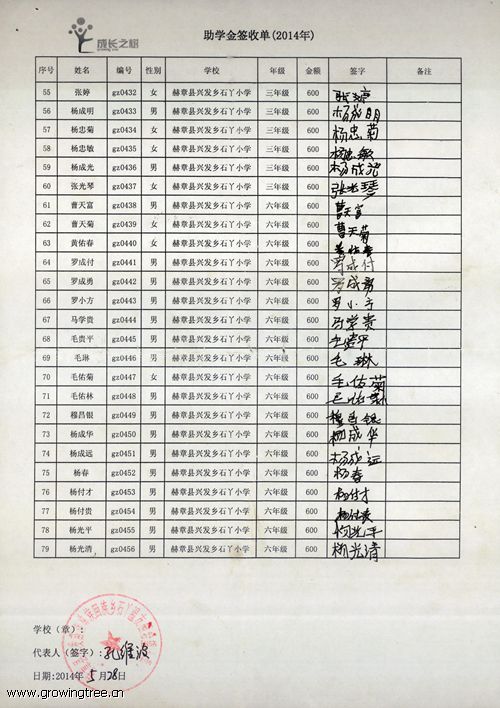 成长之树
助学金签收单(2014年)
序号 姓名 编号 性别 学校 年级 金额 签字 备注
55 张婷 gz0432 女 赫章县兴发乡石丫小学 三年级 600 张婷
56 杨成明 gz0433 男 赫章县兴发乡石丫小学 三年级 600 杨成明
57 杨忠菊 gz0434 女 赫章县兴发乡石丫小学 三年级 600 杨忠菊
58 杨忠敏 gz0435 女 赫章县兴发乡石丫小学 三年级 600 杨忠敏
59 杨成光 gz0436 男 赫章县兴发乡石丫小学 三年级 600 杨成光
60 张光琴 gz0437 女 赫章县兴发乡石丫小学 三年级 600 张光琴
61 曹天富 gz0438 男 赫章县兴发乡石丫小学 六年级 600 曹天富
62 曹天菊 gz0439 女 赫章县兴发乡石丫小学 六年级 600 曹天菊
63 黄佑春 gz0440 女 赫章县兴发乡石丫小学 六年级 600 黄佑春
64 罗成付 gz0441 男 赫章县兴发乡石丫小学 六年级 600 罗成付
65 罗成勇 gz0442 男 赫章县兴发乡石丫小学 六年级 600 罗成勇
66 罗小方 gz0443 男 赫章县兴发乡石丫小学 六年级 600 罗小方
67 马学贵 gz0444 男 赫章县兴发乡石丫小学 六年级 600 马学贵
68 毛贵平 gz0445 男 赫章县兴发乡石丫小学 六年级 600 毛贵平
69 毛琳 gz0446 男 赫章县兴发乡石丫小学 六年级 600 毛琳
70 毛佑菊 gz0447 女 赫章县兴发乡石丫小学 六年级 600 毛佑菊
71 毛佑林 gz0448 男 赫章县兴发乡石丫小学 六年级 600
72 穆昌银 gz0449 男 赫章县兴发乡石丫小学 六年级 600 穆昌银
73 杨成华 gz0450 男 赫章县兴发乡石丫小学 六年级 600 杨成华
74 杨成远 gz0451 男 赫章县兴发乡石丫小学 六年级 600 杨成远
75 杨春 gz0452 男 赫章县兴发乡石丫小学 六年级 600 杨春
76 杨付才 gz0453 男 赫章县兴发乡石丫小学 六年级 600 杨付才
77 杨付贵 gz0454 男 赫章县兴发乡石丫小学 六年级 600 杨付贵
78 杨光平 gz0455 男 赫章县兴发乡石丫小学 六年级 600 杨光平
79 杨光清 gz0456 男 赫章县兴发乡石丫小学 六年级 600 杨光清
学校（章）：
代表人（签字）：孔维波
日期:2014年 5月28日
www.growingtree.cn